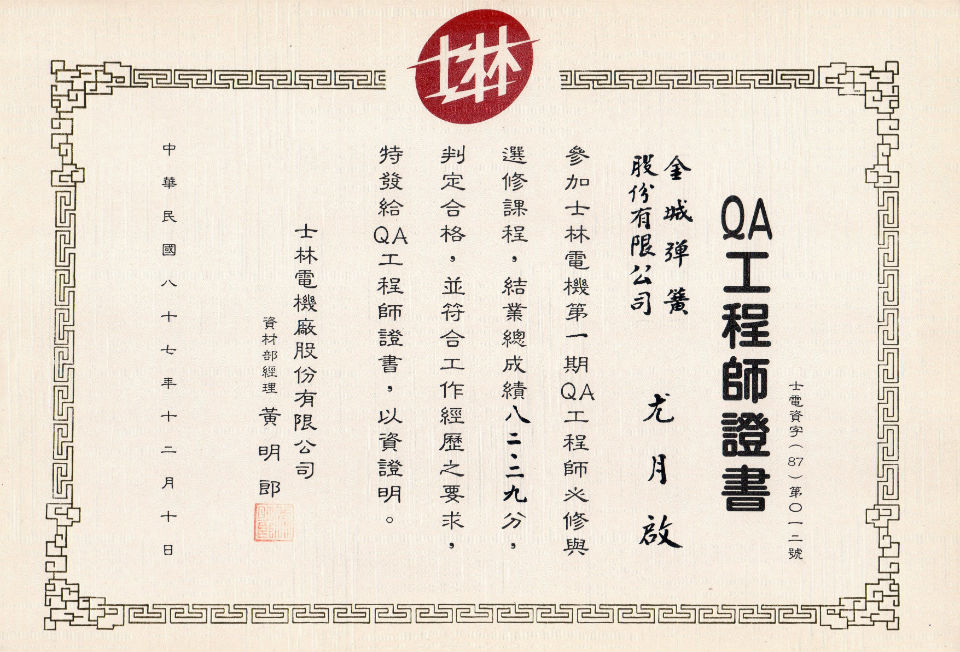 士林
QA工程師證書
士電資字（87）第○一二號
金城彈簧
股份有限公司
尤月啟
參加士林電機第一期QA工程師必修與
選修課程，結業總成績八二·二九分，
判定合格，並符合工作經歷之要求，
特發給QA工程師證書，以資證明。
士林電機廠股份有限公司
資材部經理 黃明郎
中華民國八十七年十二月十日